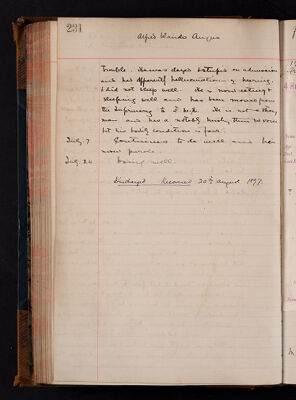 231
Alfred Angus
Trouble. He was dazed & stupid on admission
and had apparently hallucinations of hearing.
& did not sleep well. He is now eating &
sleeping well and has been moved from
the Infirmary to He is not a strong
man and has a
but his bodily condition is fair.
July. 7 Continues to do well and has
now parole.
July. 24 Doing well.
Discharged Recovered 20th August 1897.